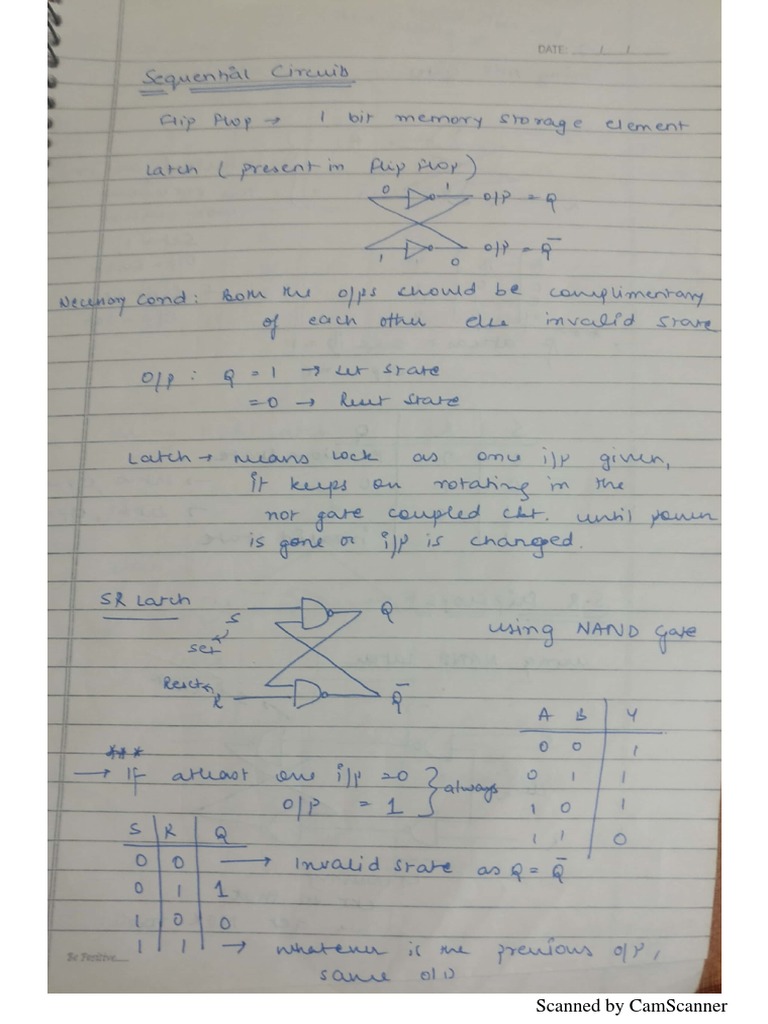 DATE: / /
Sequential Circuits
Flip Flop → 1 bit memory storage element
Latch (present in flip flop)
0 1 O/P = Q
1 0 O/P = Q̅
Necessary Cond: Both the o/ps should be complimentary
of each other else invalid state
O/P : Q = 1 → set state
=0 → Reset state
Latch → means lock as once i/p given,
it keeps on rotating in the
not gate coupled ckt. until power
is gone or i/p is changed.
SR Latch
S Q
set
using NAND Gate
Reset
R Q̅
A B Y
0 0 1
0 1 1
1 0 1
1 1 0
***
→ If atleast one i/p =0
O/P = 1 } always
S R Q
0 0 → Invalid state as Q = Q̅
0 1 1
1 0 0
1 1 → whatever is the previous o/p,
same o/p
Be Positive.....
Scanned by CamScanner